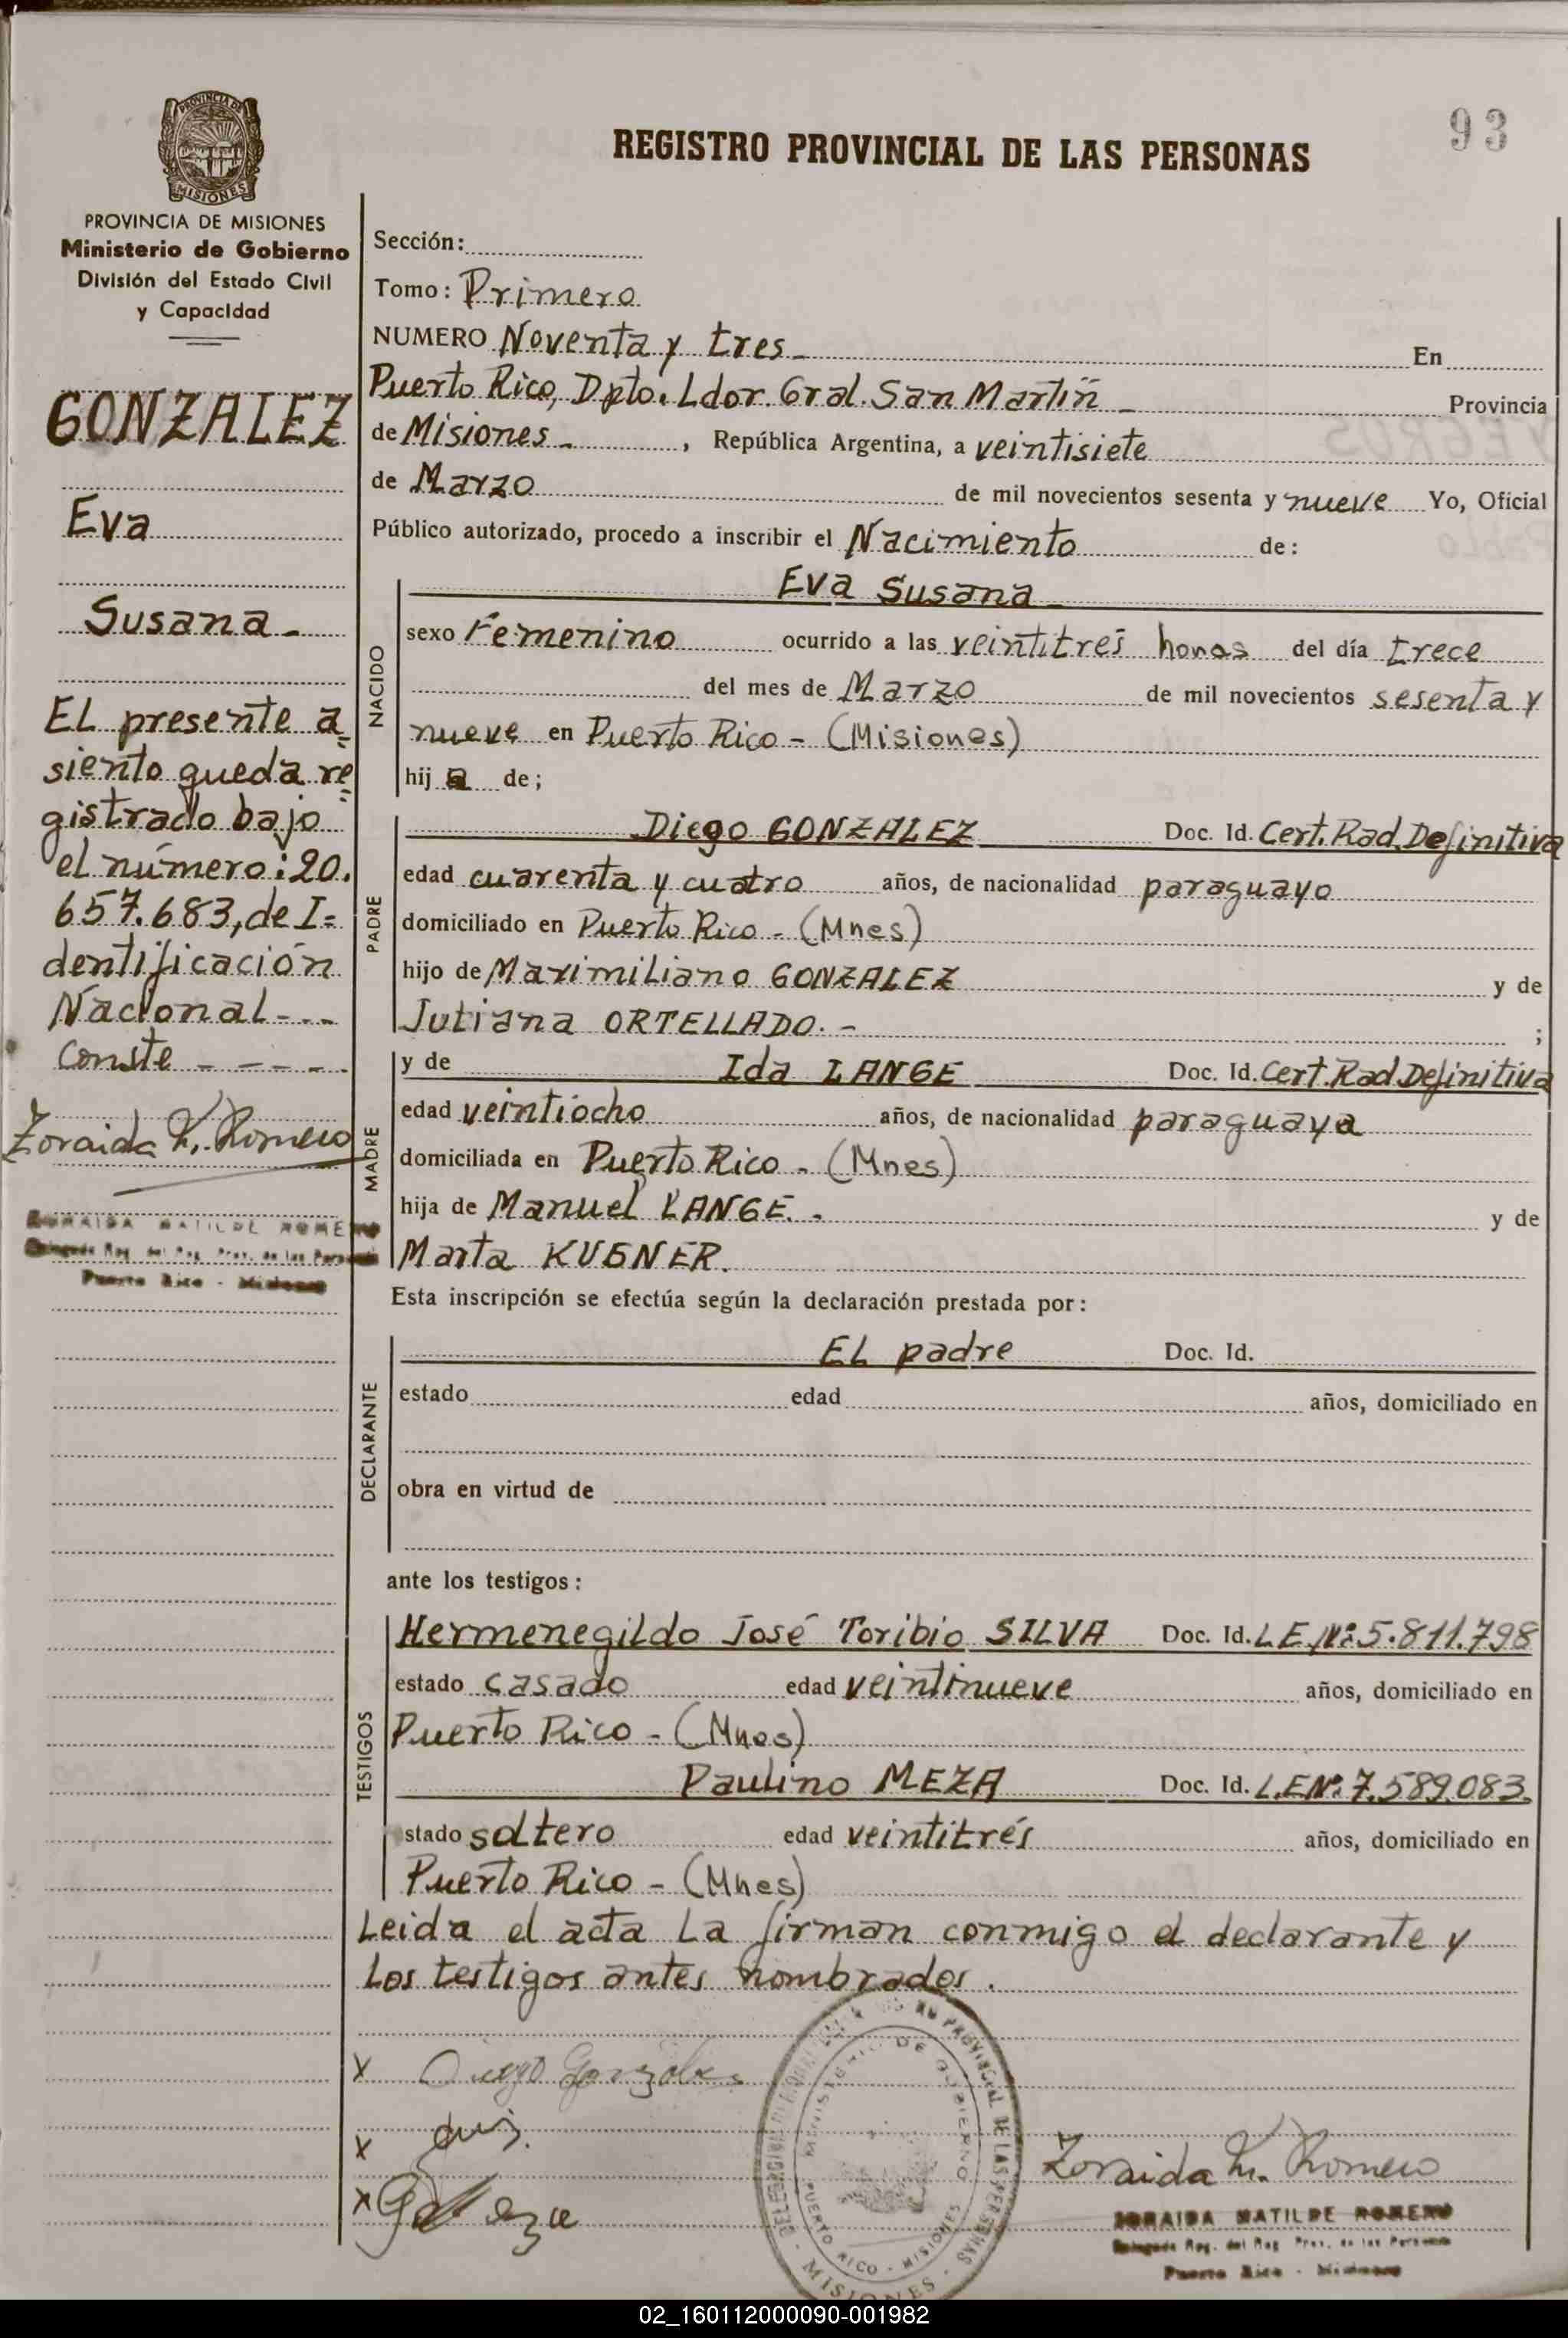 93
REGISTRO PROVINCIAL DE LAS PERSONAS
PROVINCIA DE
MISIONES
PROVINCIA DE MISIONES
Ministerio de Gobierno
División del Estado Civil
y Capacidad
GONZALEZ
Eva
Susana -
EL presente a=
siento queda re=
gistrado bajo
el número: 20.
657.683, de I=
dentificación
Nacional - - -
Conste - - - - -
Zoraida M. Romero
ZORAIDA MATILDE ROMERO
Reg. del Reg. Prov. de las Personas
Puerto Rico - Misiones
Sección:
Tomo: Primero
NUMERO Noventa y tres - En
Puerto Rico, Dpto. Ldor. Gral. San Martín - Provincia
de Misiones - , República Argentina, a veintisiete
de Marzo de mil novecientos sesenta y nueve Yo, Oficial
Público autorizado, procedo a inscribir el Nacimiento de:
Eva Susana
NACIDO
sexo Femenino ocurrido a las veintitrés horas del día trece
del mes de Marzo de mil novecientos sesenta y
nueve en Puerto Rico - (Misiones)
hij a de;
PADRE
Diego GONZALEZ Doc. Id. Cert. Rad. Definitiva
edad cuarenta y cuatro años, de nacionalidad paraguayo
domiciliado en Puerto Rico - (Mnes)
hijo de Maximiliano GONZALEZ y de
Juliana ORTELLADO. - ;
MADRE
y de Ida LANGE Doc. Id. Cert. Rad. Definitiva
edad veintiocho años, de nacionalidad paraguaya
domiciliada en Puerto Rico - (Mnes)
hija de Manuel LANGE. - y de
Marta KUGNER.
Esta inscripción se efectúa según la declaración prestada por:
DECLARANTE
EL padre Doc. Id.
estado edad años, domiciliado en
obra en virtud de
ante los testigos:
TESTIGOS
Hermenegildo José Toribio SILVA Doc. Id. L E Nº: 5.811.798
estado casado edad veintinueve años, domiciliado en
Puerto Rico - (Mnes)
Paulino MEZA Doc. Id. L.E Nº: 7.589.083.
stado soltero edad veintitrés años, domiciliado en
Puerto Rico - (Mnes)
Leida el acta La firman conmigo el declarante y
Los testigos antes nombrados.
X Diego Gonzalez
X
X
PROVINCIAL DE LAS PERSONAS
MINISTERIO DE GOBIERNO
PUERTO RICO - MISIONES
MISIONES
Zoraida M. Romero
ZORAIDA MATILDE ROMERO
Reg. del Reg. Prov. de las Personas
Puerto Rico - Misiones
02_160112000090-001982